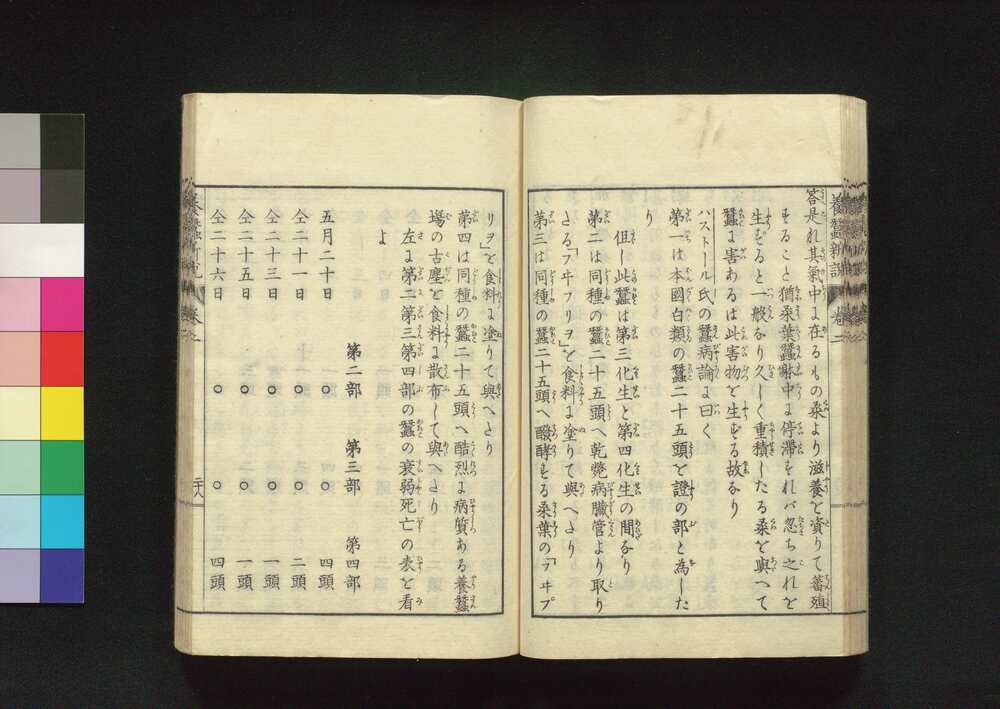 養蠶新論 卷二
答是れ其氣中ま在るもの桑より滋養を資りて蕃殖
することゝ猶桑葉蠶躰中ま停滯すれバ忽ち之れを
生ずると一般なり久しく重積したる桑を與へて
蠶ま害あるは此害物を生ずる故なり
パストール氏の蠶病論ま曰く
第一は本國白類の蠶二十五頭を證の部と為した
り
但し此蠶は第三化生と第四化生の間なり
第二は同種の蠶二十五頭へ乾斃病臓管より取り
さる「フヰフリヲ」を食料ま塗りて與へたり
第三は同種の蠶二十五頭へ醱酵する桑葉の「フヰプ
リヲ」を食料ま塗りて與へたり
第四は同種の蠶二十五頭へ酷烈ま病質ある養蠶
塲の古塵を食料ま散布して與へたり
左ま第二第三第四部の蠶の衰弱死亡の表を看
よ
第二部 第三部 第四部
五月二十日 ○ ○ 四頭
仝二十一日 ○ ○ 二頭
仝二十三日 ○ ○ 一頭
仝二十五日 ○ ○ 一頭
仝二十六日 ○ ○ 四頭
二十八